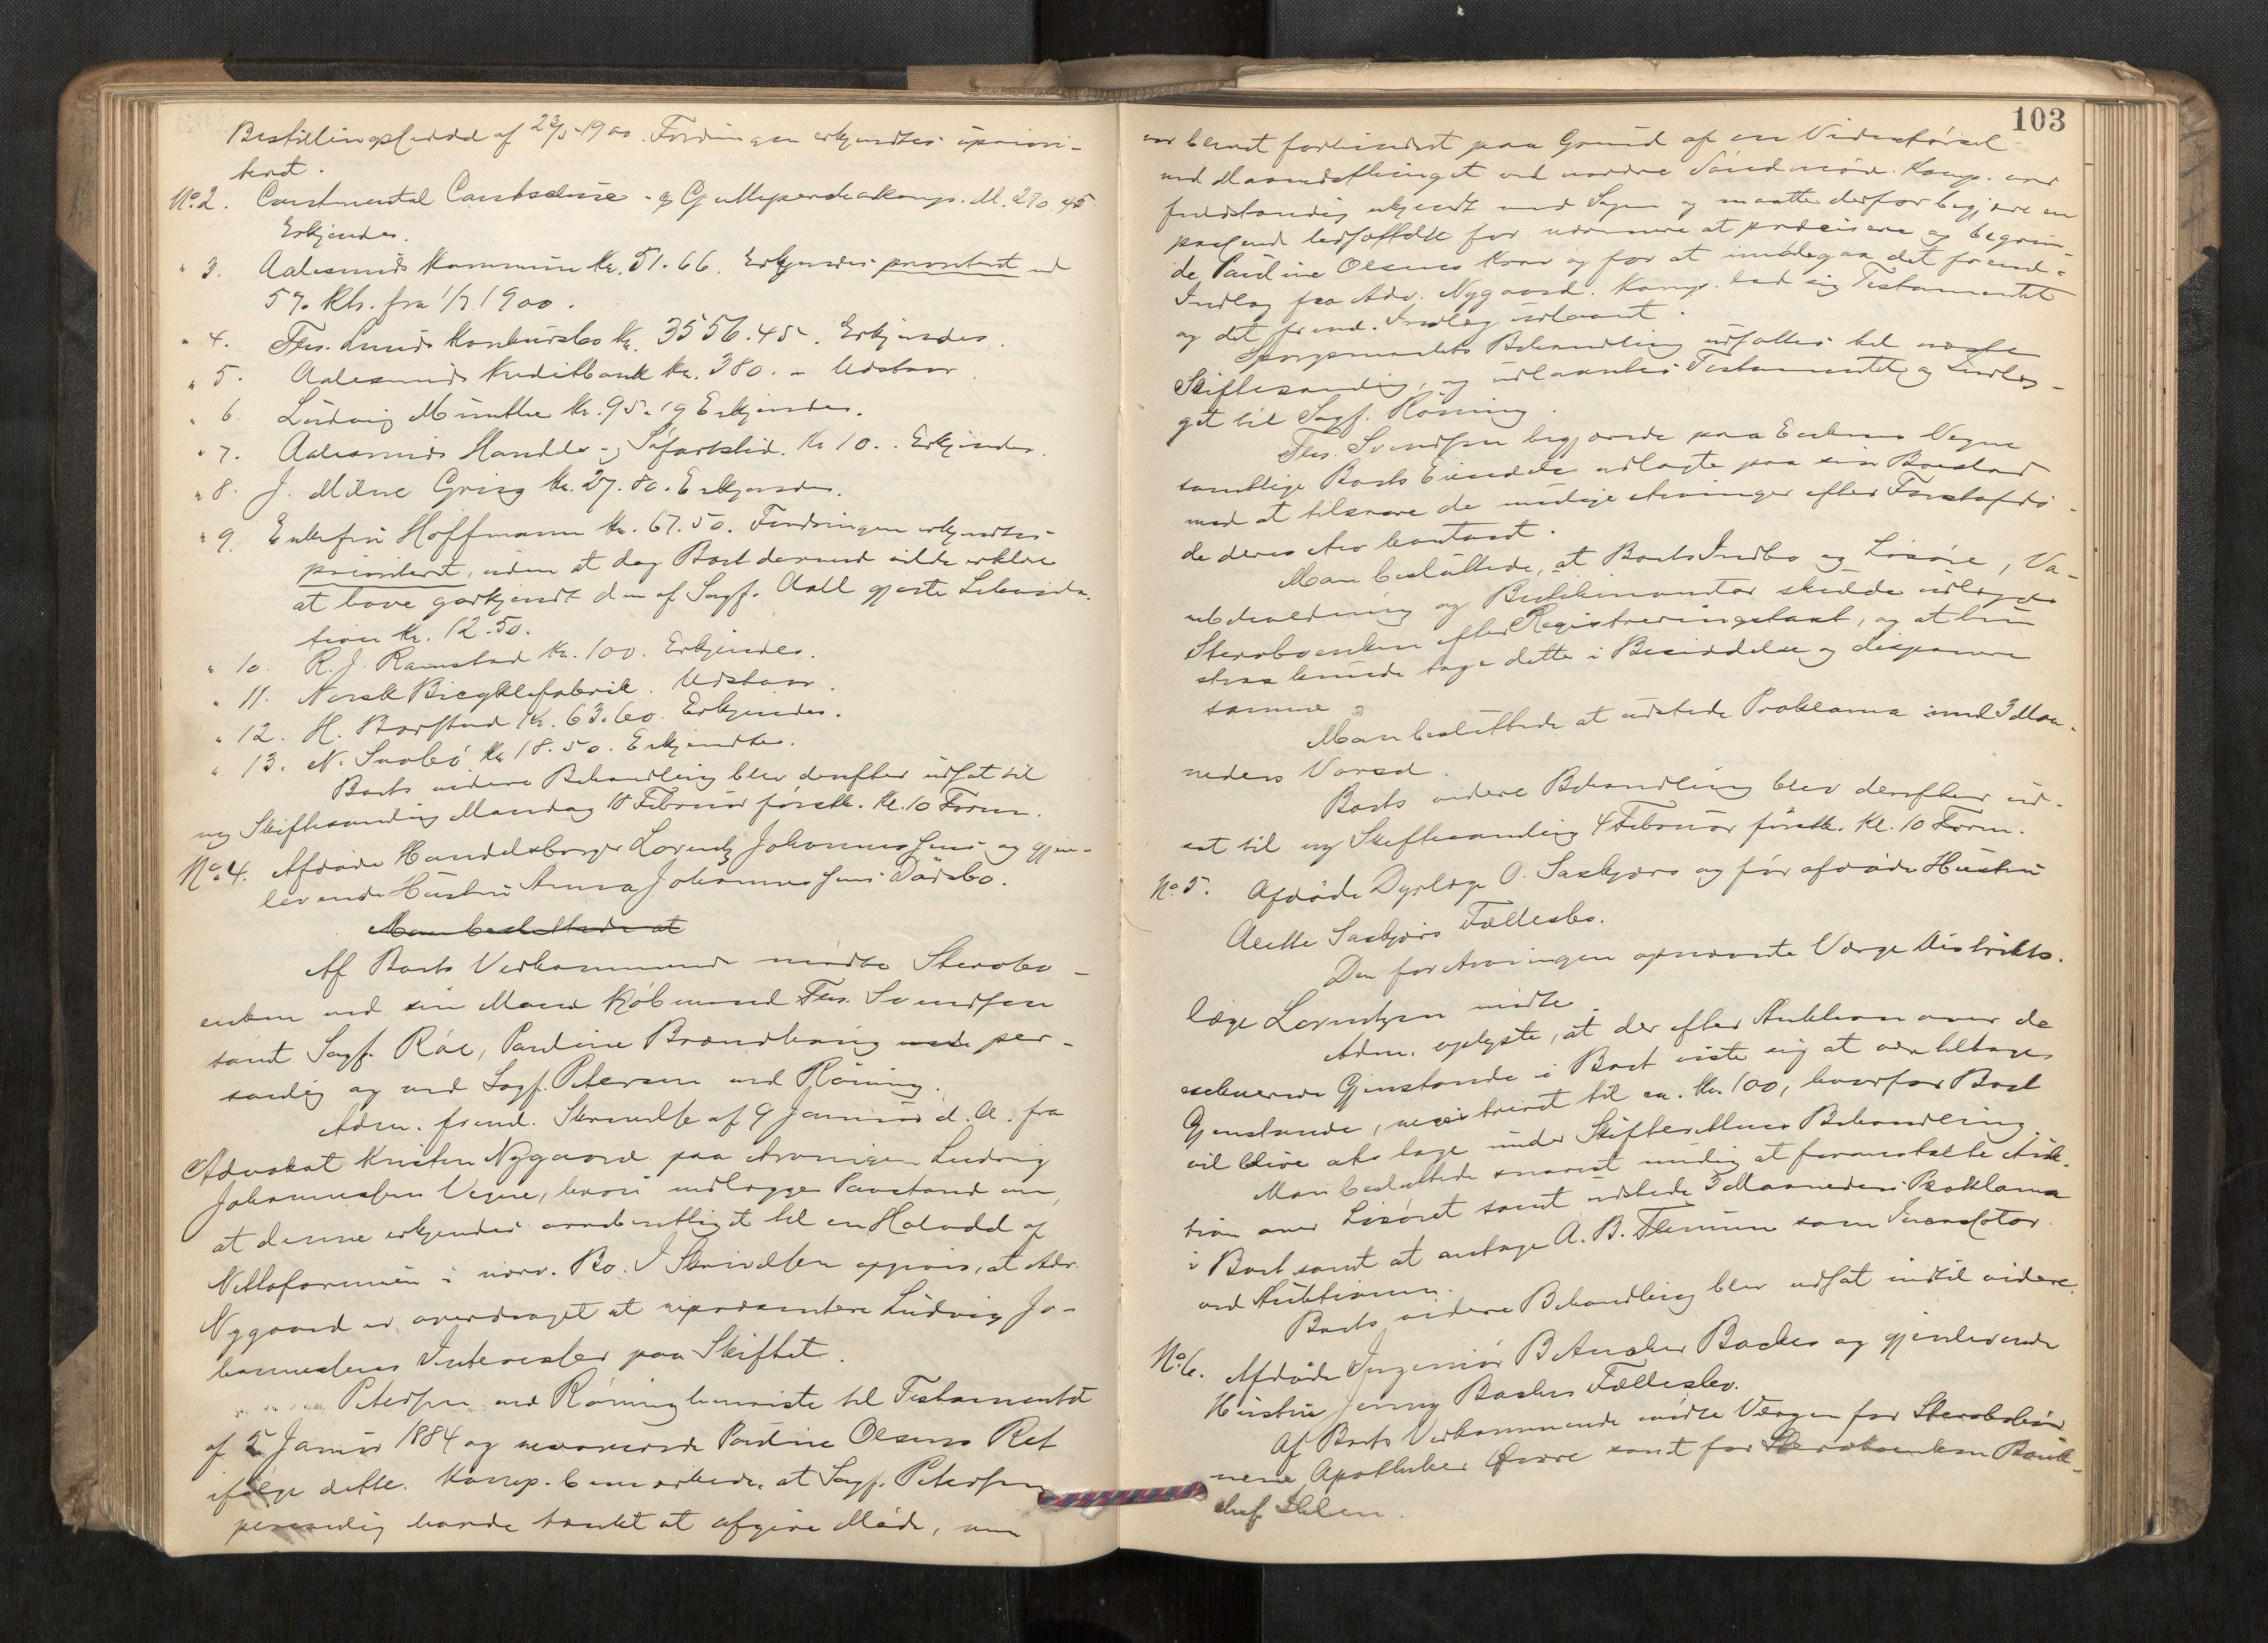 Bestillingsseddel af 23/5 1900. Fordringen erkjendtes upriori-
teret.
No. 2. Continental Caoutschuc- og Guttaperchakomp. M. 270.45
Erkjendes.
" 3. Aalesunds Kommune Kr. 51.66. Erkjendes prioritert med
5 % Rtr. fra 1/7 1900.
" 4. Ths. Lunds Konkursbo Kr. 3556.45. Erkjendes.
" 5. Aalesunds Kreditbank Kr. 380. - Udstaar.
" 6. Ludvig Munthe Kr. 95.19 Erkjendes.
" 7. Aalesunds Handels- og Søfartstid. Kr 10.. Erkjendes.
" 8. J. Milne Grieg Kr. 27.80. Erkjendes.
" 9. Enkefru Hoffmann Kr. 67.50. Fordringen erkjendtes
prioritert, uden at dog Boet dermed vilde erklære
at have godkjendt den af Sagf. Aall gjorte Likvida-
tion Kr. 12.50.
" 10. R. J. Ramstad Kr. 100. Erkjendes.
" 11. Norsk Bicyklefabrik. Udstaar.
" 12. H. Kr. 63.60. Erkjendes.
" 13. N. Kr 18.50. Erkjendtes.
Boets videre Behandling blev derefter udsat til
ny Skiftesamling Mandag Februar førstk. Kl. 10 Form.
No. 4. Afdøde Handelsborger Lorentz Johannessens og gjen-
levende Hustru Anna Johannessens Dødsbo.
Man besluttede at
Af Boets Vedkommende mødte Stervbo-
enken med sin Mand Kjøbmand Ths. Svendsen
samt Sagf. Røe, Pauline Brandhaug per-
sonlig og ved Sagf. Petersen ved Røning.
Adm. fremd. Skrivelse af 9 Januar d. A. fra
Advokat Kristen Nygaard paa Arvingen Ludvig
Johannessens Vegne, hvori nedlægges Paastand om,
at denne erkjendes arveberettiget til en Halvdel af
Nettoformuen i nærv. Bo. I Skrivelsen opgives, at Adv.
Nygaard er overdraget at repræsentere Ludvig Jo-
hannessens Interesser paa Skiftet.
Petersen ved Røning henviste til Testamentet
af 5 Januar 1884 og reserverede Pauline Olsens Ret
ifølge dette. Komp. bemærkede, at Sagf. Petersen
personlig havde tænkt at afgive Møde, men
103
var blevet forhindret paa Grund af en Vidneførsel
ved Maanedsthinget ved nordre Søndmøre. Komp. var
fuldstændig ukjendt med Sagen og maatte derfor begjære en
passende Udsættelse for nærmere at præcisere og begrun-
de Pauline Olsens Krav og for at imødegaa det fremd.
Indlæg fra Adv. Nygaard. Komp. bad sig Testamentet
og det fremd. Indlæg udlaant.
Spørgsmaalets Behandling udsattes til næste
Skiftesamling, og udlaantes Testamentet og Indlæg-
get til Sagf. Røning.
Ths. Svendsen begjærede paa Enkens Vegne
samtlige Boets Eiendele udlagte paa sin Boeslod
mod at tilsvare de mulige Arvinger efter Forstafdø-
de deres Arv kontant.
Man besluttede, at Boets Indbo og Løsøre, Va-
rebeholdning og Butikinventar skulde udlægges
Stervboenken efter Registreringstaxt, og at hun
strax kunde tage dette i Besiddelse og disponere
samme.
Man besluttede at udstede Proklama med 3 Maa-
neders Varsel.
Boets videre Behandling blev derefter ud-
sat til ny Skiftesamling 4 Februar førstk. Kl. 10 Form.
No. 5. Afdøde Dyrlæge O. Saxbjørs og før afdøde Hustru
Alette Saxbjørs Fællesbo.
Den for Arvingen opnævnte Værge Distrikts-
læge Lorentzen mødte.
Adm. oplyste, at der efter Auktion over de
Gjenstande i Boet viste sig at være tilbage
Gjenstande, registreret til ca. Kr. 100, hvorfor Boet
vil blive at tage under Skifterettens Behandling.
Man besluttede snarest mulig at foranstalte Auk-
tion over Løsøret samt udstede 3 Maaneders Proklama
i Boet samt at antage A. B. Flemmen som Incassator
ved Auktionen.
Boets videre Behandling blev udsat indtil videre.
No. 6. Afdøde Ingeniør B. Ancher Backes og gjenlevende
Hustru Jenny Backes Fællesbo.
Af Boets Vedkommende mødte Værgen for
nene, Apotheker samt for Stervboenken Bank-
chef